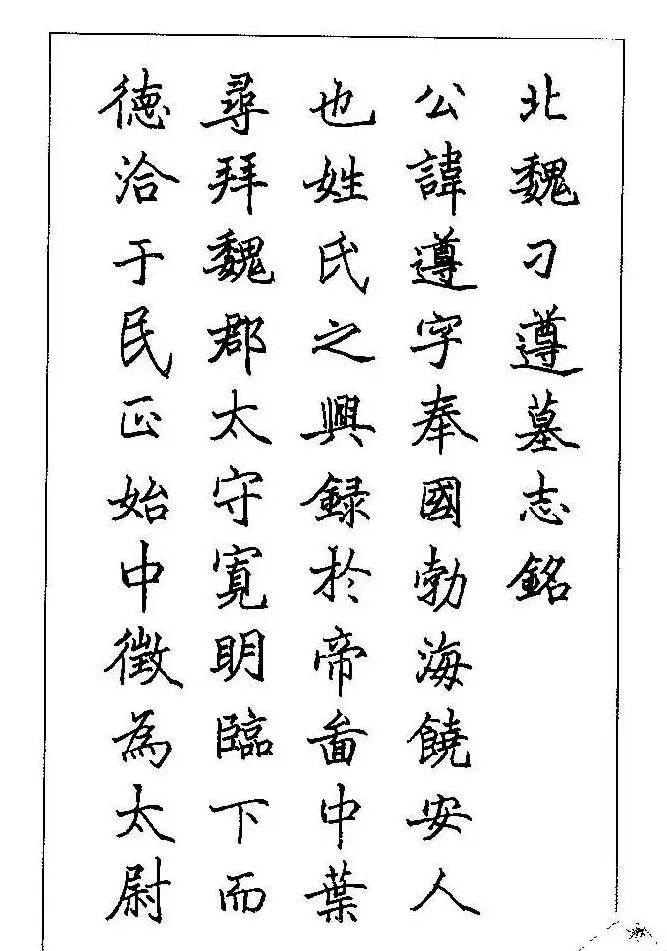 北魏刁遵墓志銘
公諱遵字奉國勃海饒安人
也姓氏之興録於帝啚中葉
尋拜魏郡太守寬明臨下而
德洽于民正始中徵為太尉